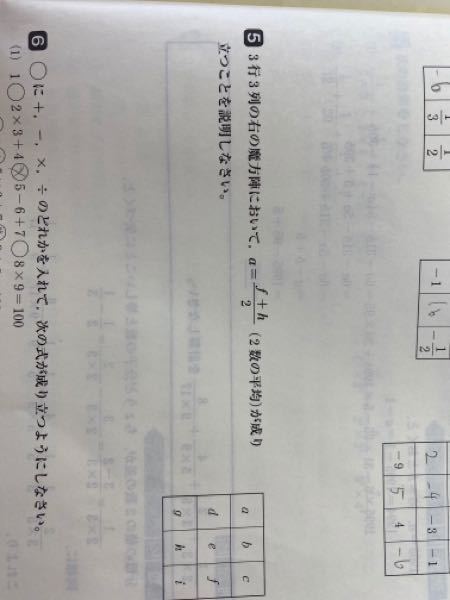 -6 1/3 1/2
-1 -1/2
2 -4 -3 -1
-9 5 4 -6
5 3行3列の右の魔方陣において, a=(f+h)/2 (2数の平均)が成り
立つことを説明しなさい。
a b c
d e f
g h i
6 ○に+, -, ×, ÷のどれかを入れて, 次の式が成り立つようにしなさい。
(1) 1○2×3+4⊗5-6+7○8×9=100